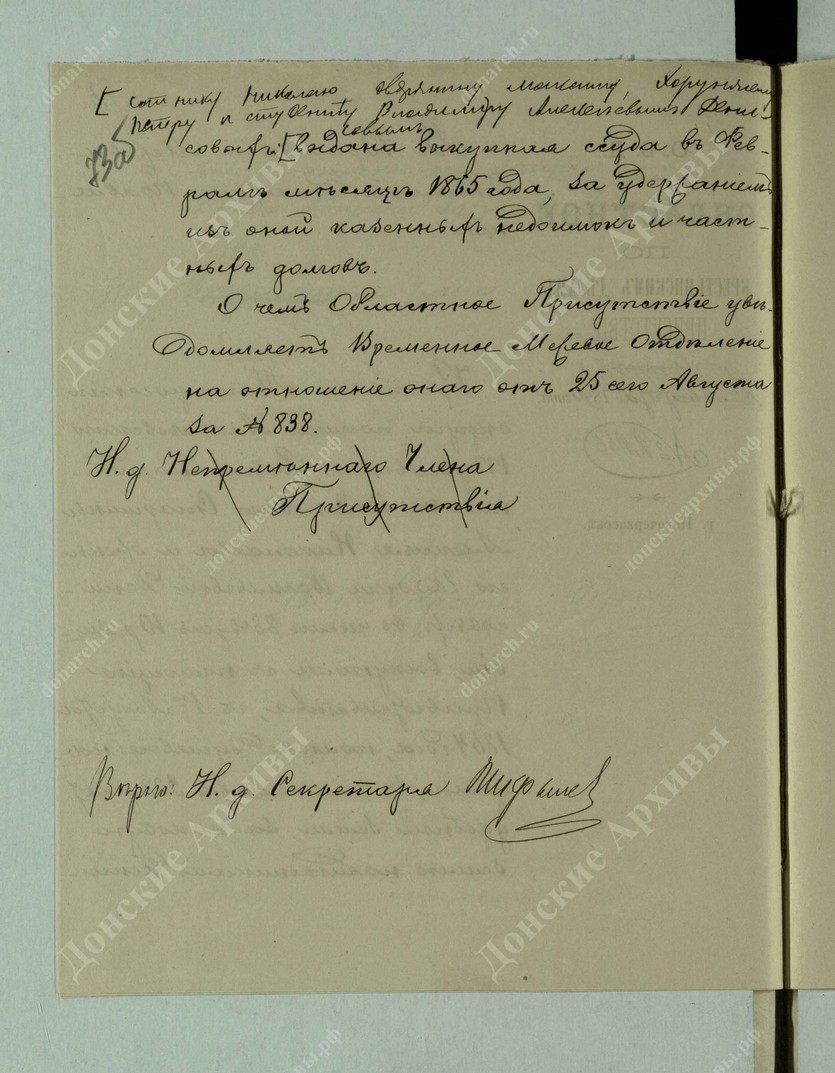 [ сотнику Николаю дворянину Максиму, Хорунжему
Петру и студенту Владимиру Алексеевымъ Дени-
совымъ
73об
совыхъ: [ выдана выкупная ссуда въ Фев-
ралѣ мѣсяцѣ 1865 года, за удержаніемъ
изъ оной казенныхъ недоимокъ и част-
ныхъ долговъ.
О чемъ Областное Присутствіе увѣ-
домляетъ Временное Межевое Отдѣленіе
на отношеніе онаго отъ 25 сего Августа
за № 838.
И. д. Непремѣннаго Члена
Присутствія
Вѣрно: И. д. Секретаря
Донские Архивы
donarch.ru
донскиеархивы.рф